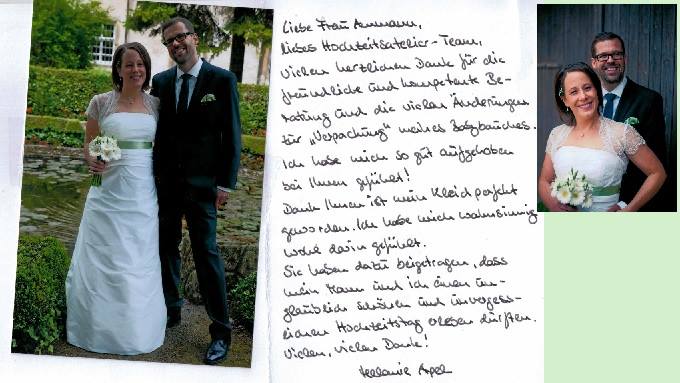 Liebe Frau Ammann,
liebes Hochzeitsatelier-Team,
vielen herzlichen Dank für die
freundliche und kompetente Be-
ratung und die vielen Änderungen
für „Verpackung" meines Babybauches.
Ich habe mich so gut aufgehoben
bei Ihnen gefühlt!
Dank Ihnen ist mein Kleid perfekt
geworden. Ich habe mich wahnsinnig
wohl darin gefühlt.
Sie haben dazu beigetragen, dass
mein Mann und ich einen un-
glaublich schönen und unvergess-
lichen Hochzeitstag erleben durften.
Vielen, vielen Dank!
Melanie